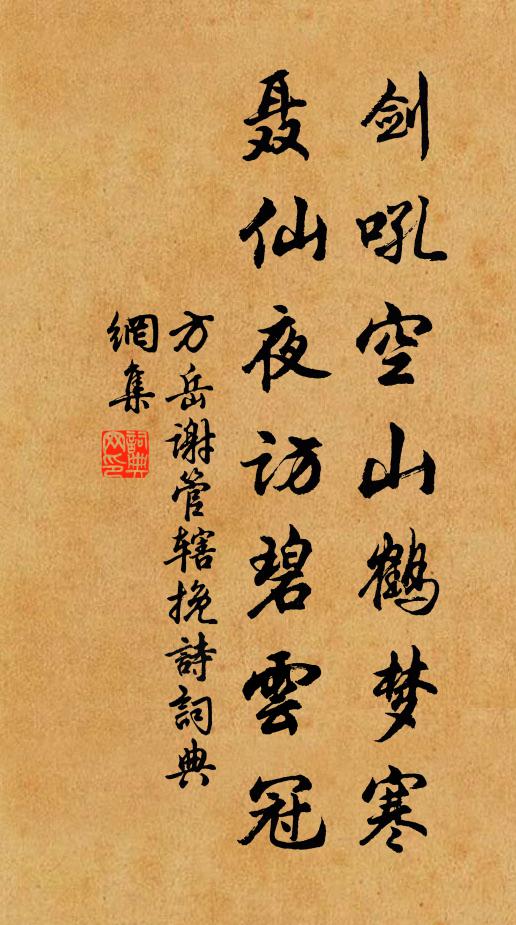 剑吼空山鹤梦寒
聂仙夜访碧雲冠
方岳谢管辖挽詩詞典
網集
詞典网印